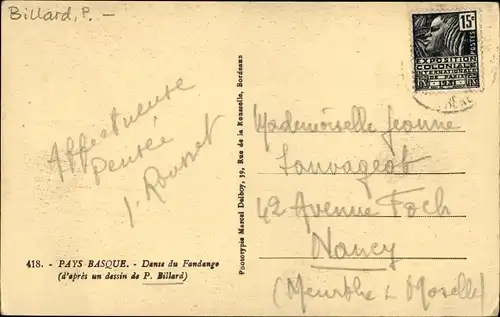 Billard, P. –
15c
POSTES
EXPOSITION
COLONIALE
INTERNATIONALE
DE PARIS
1931
Affectueuse
Pensée
J. Rousset
418. - PAYS BASQUE. - Danse du Fandango
(d'après un dessin de P. Billard)
Phototypie Marcel Delboy, 39, Rue de la Rousselle, Bordeaux
Mademoiselle Jeanne
Sauvageot
42 Avenue Foch
Nancy
(Meurthe & Moselle)